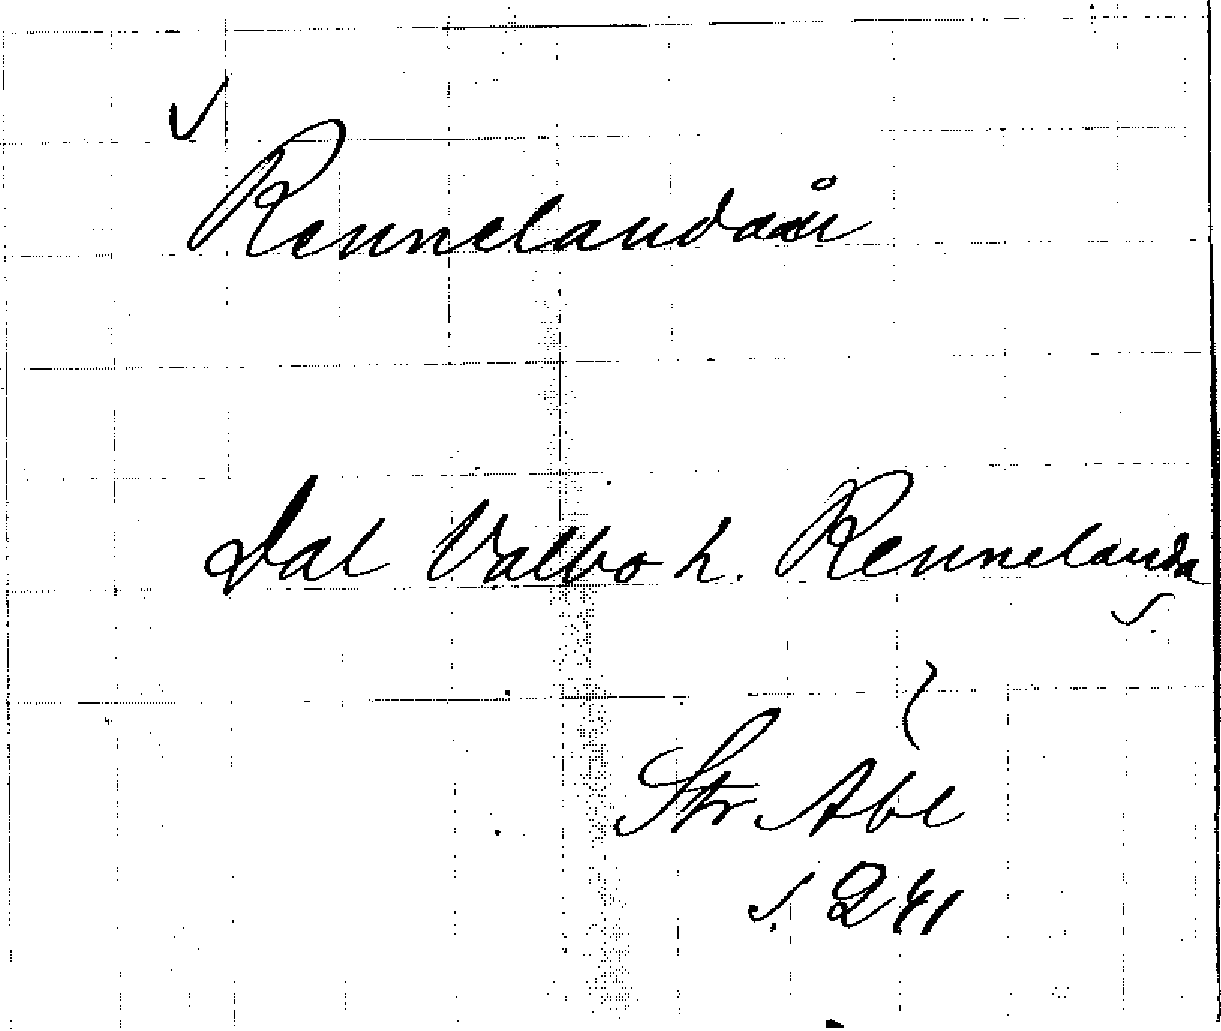 ✓
Rennelandaån
Dal Valbo h. Rennelanda
s.
Str Abl
s. 241